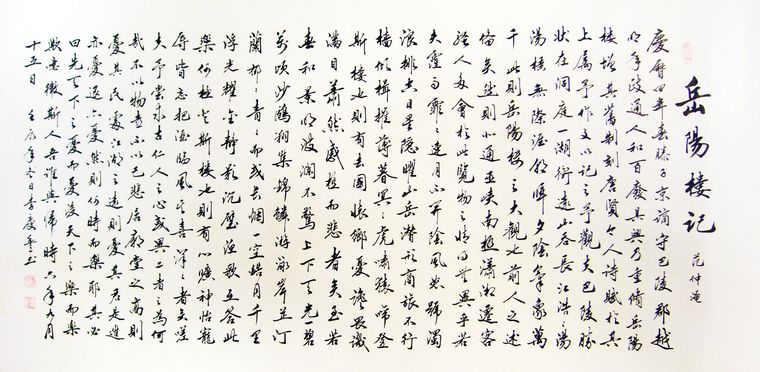 岳陽樓記
范仲淹
慶曆四年春滕子京謫守巴陵郡越
明年政通人和百廢具興乃重脩岳陽
樓增其舊制刻唐賢今人詩賦於其
上屬予作文以記之予觀夫巴陵勝
狀在洞庭一湖銜遠山吞長江浩浩湯
湯橫無際涯朝暉夕陰氣象萬
千此則岳陽樓之大觀也前人之述
備矣然則北通巫峽南極瀟湘遷客
騷人多會於此覽物之情得無異乎若
夫霪雨霏霏連月不開陰風怒號濁
浪排空日星隱曜山岳潛形商旅不行
檣傾楫摧薄暮冥冥虎嘯猿啼登
斯樓也則有去國懷鄉憂讒畏譏
滿目蕭然感極而悲者矣至若
春和景明波瀾不驚上下天光一碧
萬頃沙鷗翔集錦鱗游泳岸芷汀
蘭郁郁青青而或長煙一空皓月千里
浮光耀金靜影沉璧漁歌互答此
樂何極登斯樓也則有心曠神怡寵
辱皆忘把酒臨風其喜洋洋者矣嗟
夫予嘗求古仁人之心或異二者之為何
哉不以物喜不以己悲居廟堂之高則
憂其民處江湖之遠則憂其君是進
亦憂退亦憂然則何時而樂耶其必
曰先天下之憂而憂後天下之樂而樂
歟噫微斯人吾誰與歸時六年九月
十五日 壬辰年冬日李慶